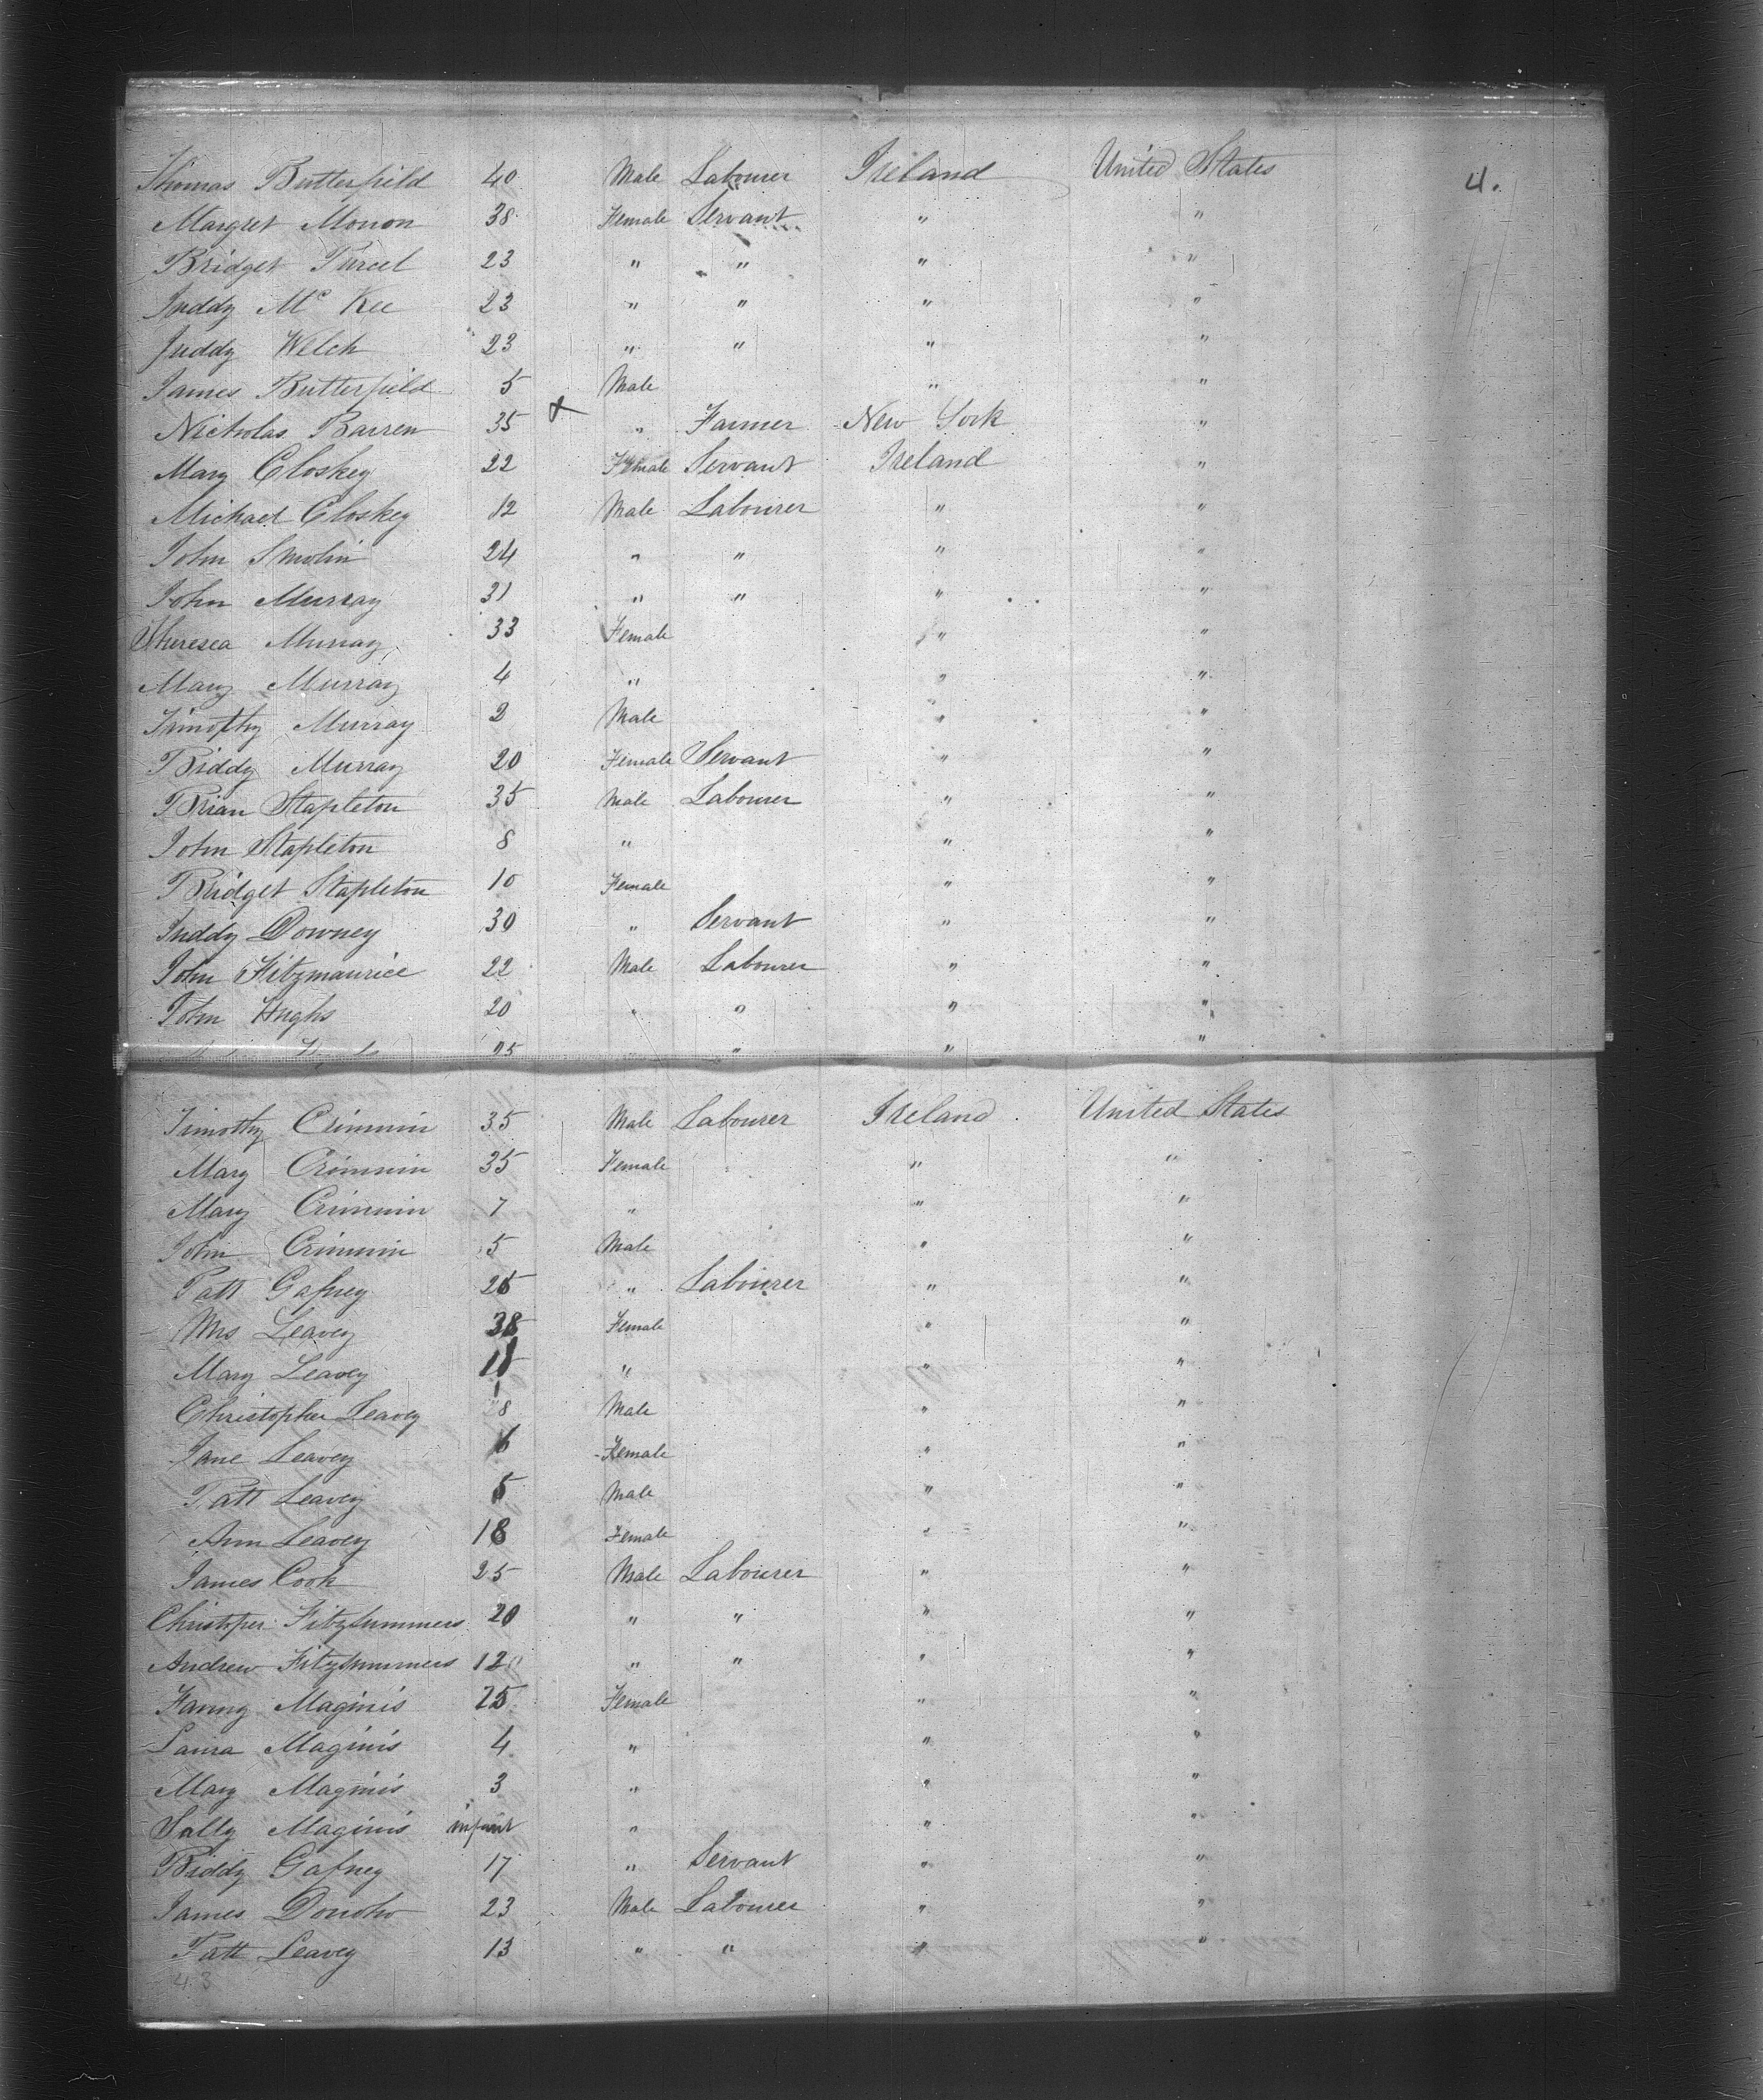 4.
Thomas Butterfield 40 Male Labourer Ireland United States
Margret Monon 38 Female Servant " "
Bridget Purcel 23 " " " "
Juddy Mc Kee 23 " " " "
Juddy Welch 23 " " " "
James Butterfield 5 Male " "
Nicholas Barren 35 + " Farmer New York "
Mary Closkey 22 Female Servant Ireland "
Michael Closkey 12 Male Labourer " "
John Smolin 24 " " " "
John Murray 31 " " " "
Theresea Murray 33 Female " "
Mary Murray 4 " " "
Timothy Murray 2 Male " "
Biddy Murray 20 Female Servant " "
Brian Stapleton 35 Male Labourer " "
John Stapleton 8 " " "
Bridget Stapleton 10 Female " "
Juddy Downey 30 " Servant " "
John Fitzmaurice 22 Male Labourer " "
John Hughs 20 " " " "
25 " " "
Timothy Crimmin 35 Male Labourer Ireland United States
Mary Crimmin 35 Female " "
Mary Crimmin 7 " " "
John Crimmin 5 Male " "
Patt Gafney 26 " Labourer " "
Mrs Leavey 38 Female " "
Mary Leavey " " "
Christopher Leavey 8 Male " "
Jane Leavey 6 Female " "
Patt Leavey 5 Male " "
Ann Leavey 18 Female " "
James Cook 25 Male Labourer " "
Christoper Fitzsummers 20 " " " "
Andrew Fitzsummers 12 " " " "
Fanny Maginis 25 Female " "
Laura Maginis 4 " " "
Mary Maginis 3 " " "
Sally Maginis infant " " "
Biddy Gafney 17 " Servant " "
James Donoho 23 Male Labourer " "
Patt Leavey 13 " " " "
43